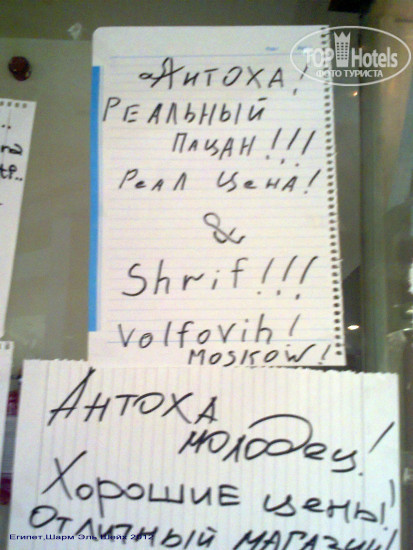 TOP Hotels
ФОТО ТУРИСТА
Антоха!
Реальный
пацан!!!
Реал цена!
&
Shrif!!!
Volfovih!
Moskow!
Антоха
молодец!
Хорошие цены!
Отличный магазин!
Египет,Шарм Эль Шейх 2012